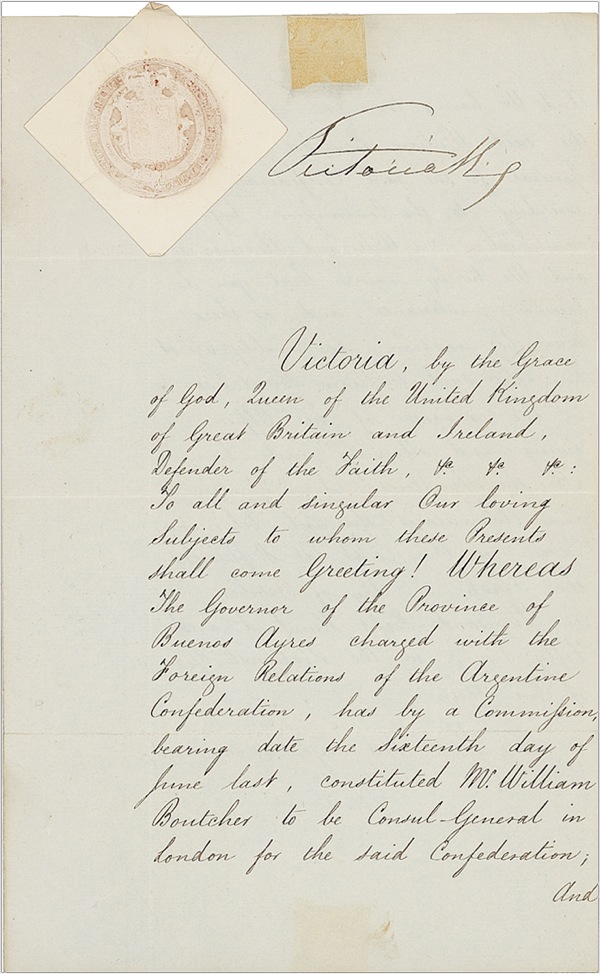 Victoria R.
Victoria, by the Grace
of God, Queen of the United Kingdom
of Great Britain and Ireland,
Defender of the Faith, &c. &c. &c.:
To all and singular Our loving
Subjects to whom these Presents
shall come Greeting! Whereas
The Governor of the Province of
Buenos Ayres charged with the
Foreign Relations of the Argentine
Confederation, has by a Commission,
bearing date the sixteenth day of
June last, constituted Mr. William
Boutcher to be Consul-General in
London for the said Confederation;
And